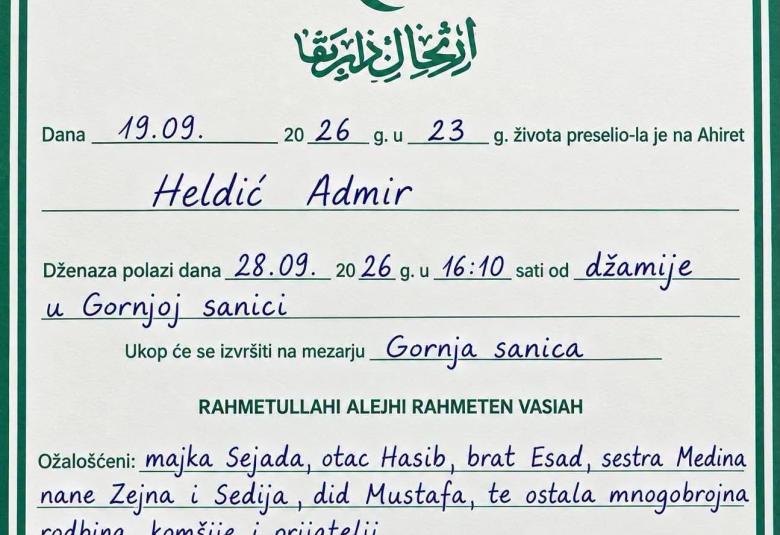 Dana 19.09. 20 26 g. u 23 g. života preselio-la je na Ahiret
Heldić Admir
Dženaza polazi dana 28.09. 20 26 g. u 16:10 sati od džamije
u Gornjoj sanici
Ukop će se izvršiti na mezarju Gornja sanica
RAHMETULLAHI ALEJHI RAHMETEN VASIAH
Ožalošćeni: majka Sejada, otac Hasib, brat Esad, sestra Medina
nane Zejna i Sedija, did Mustafa, te ostala mnogobrojna
rodbina, komšije i prijatelji